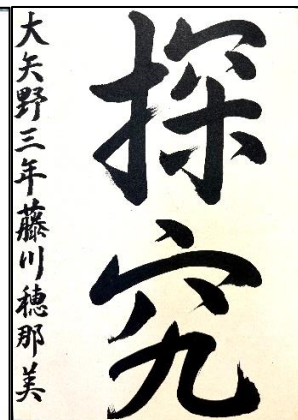 探究
大矢野三年藤川穂那美